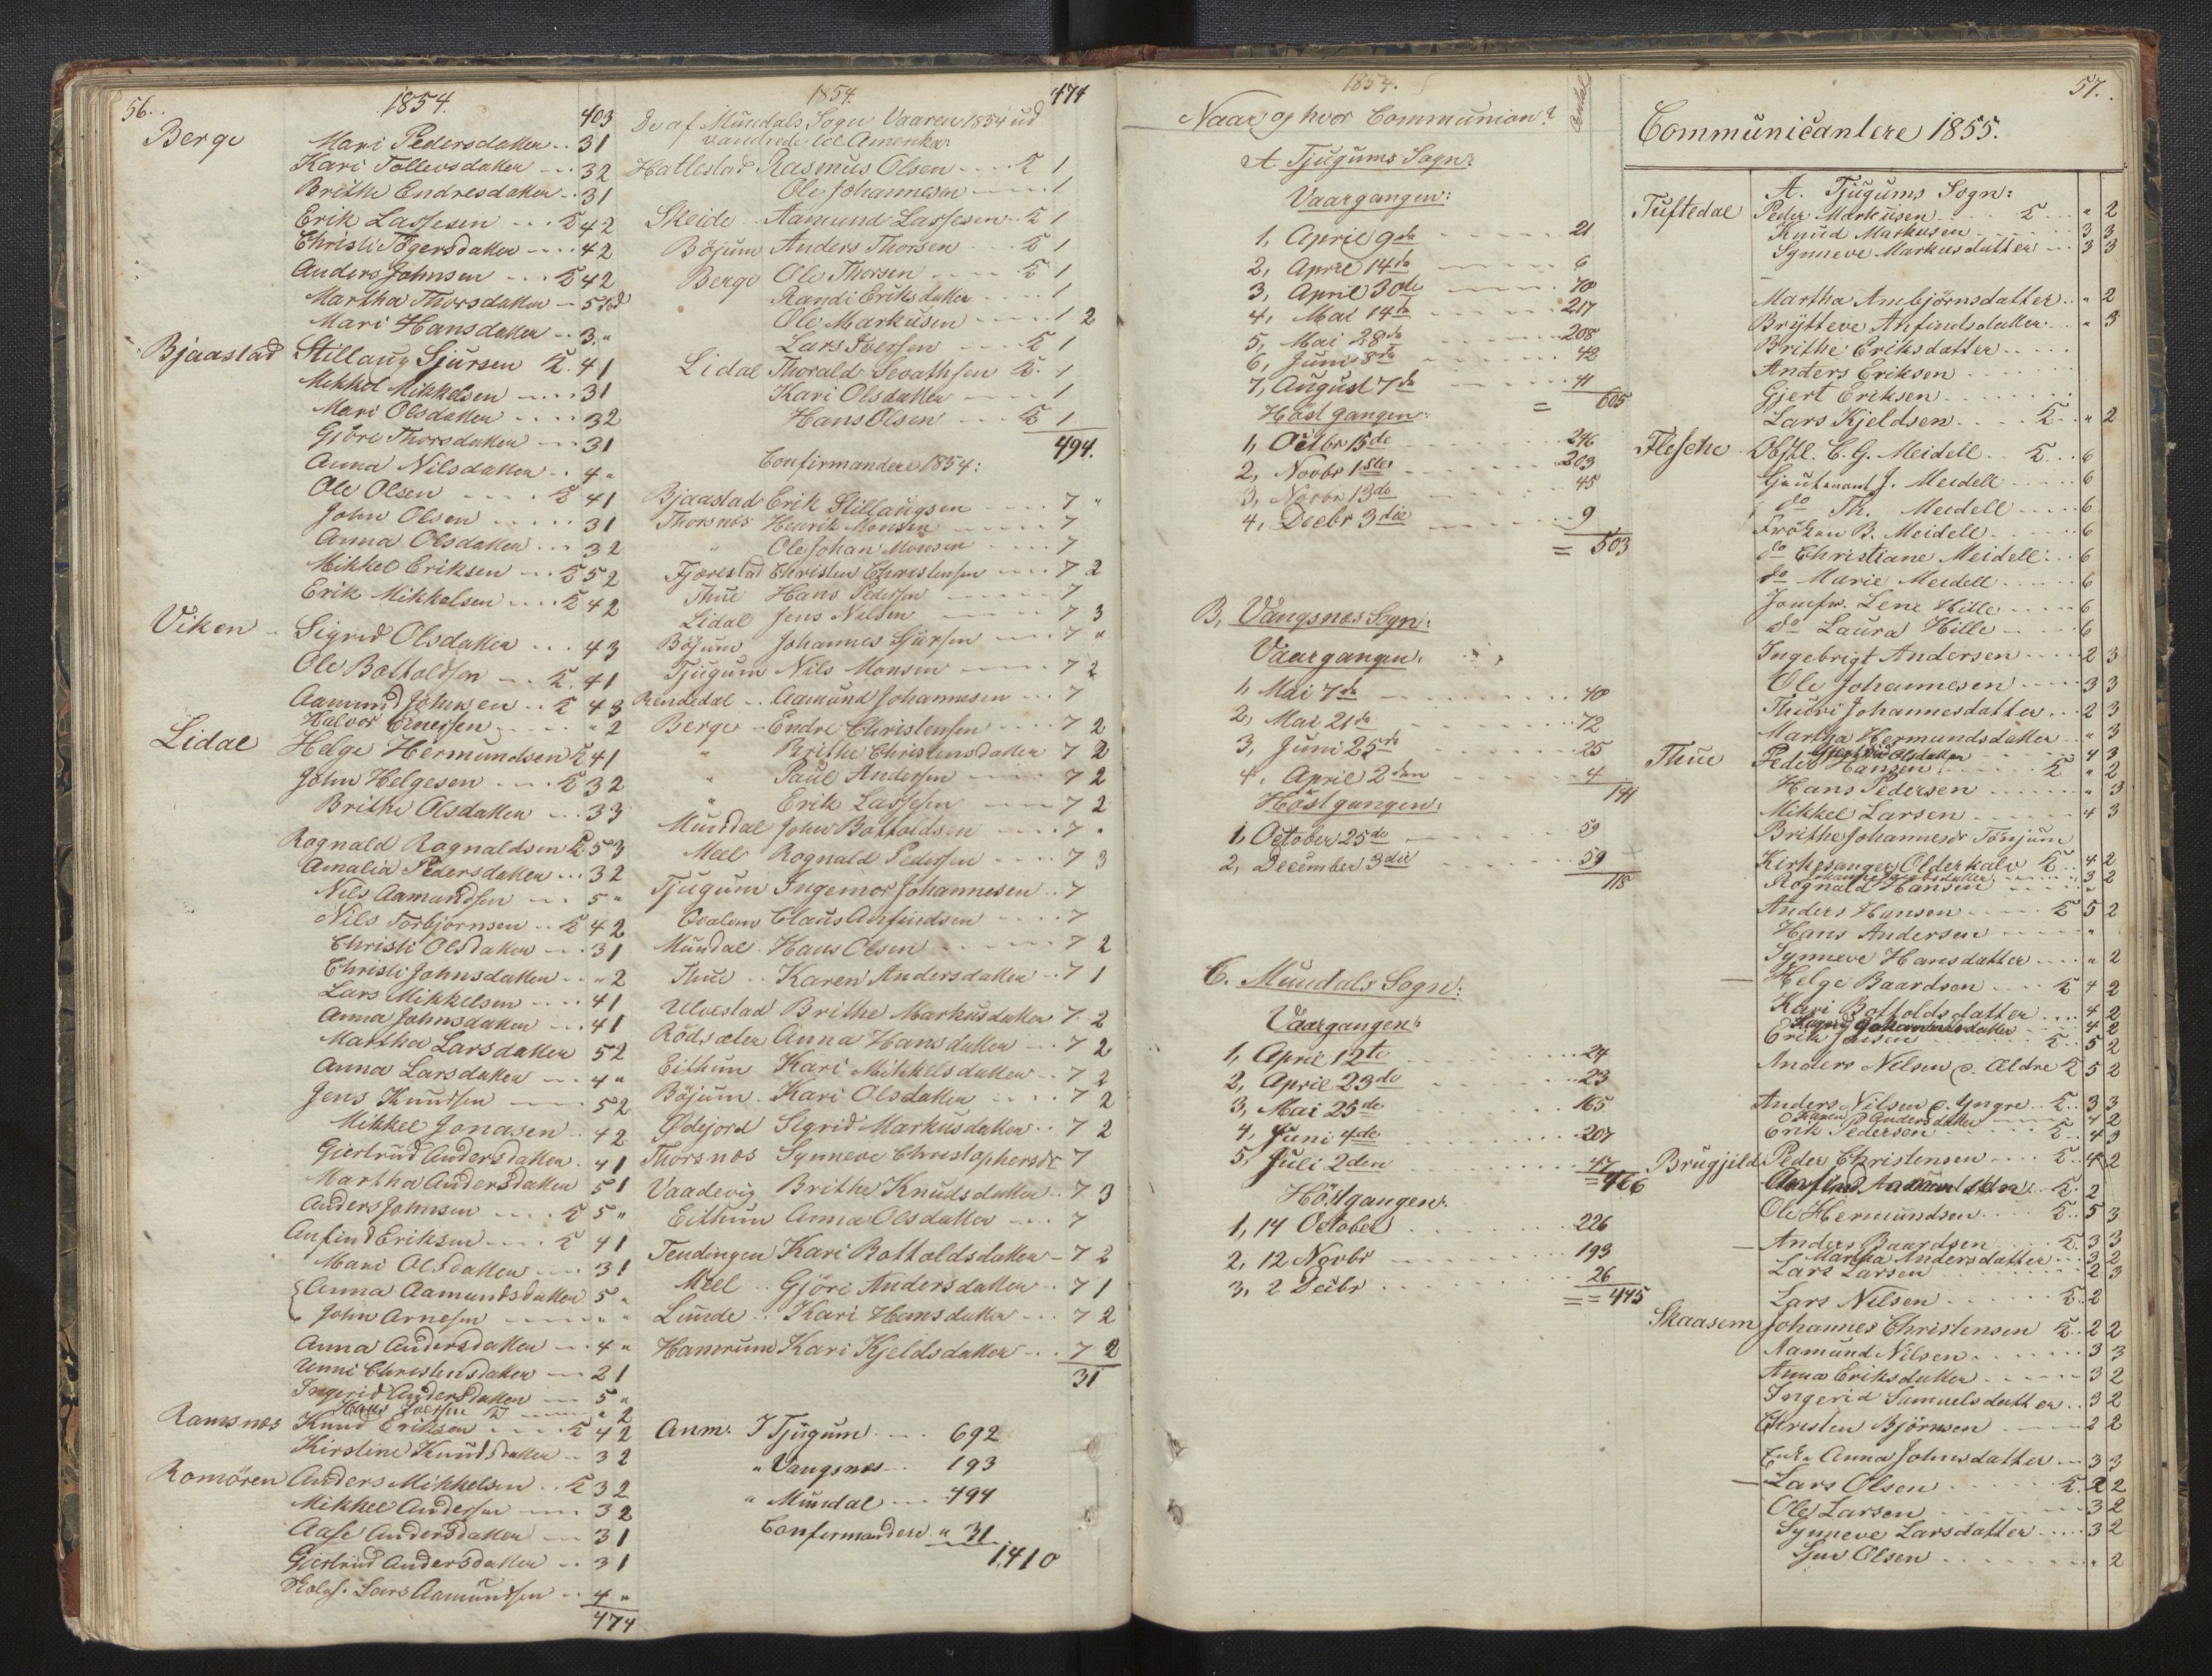 56.
1854.
403
Berge Mari Pedersdatter .. 31
Kari Tollevsdatter ... 32
Brithe Endresdatter .. 31
Erik Lassesen ... 42
Christi Tögersdatter .... 42
Anders Johnsen ... 42
Martha Thorsdatter - 5
Mari Hansdatter .. 3 "
Bjaastad Stillaug Sjursen 41
Mikkel Mikkelsen .... 31
Mari Olsdatter .... 32
Gjöre Thorsdatter ... 31
Anna Nilsdatter .. 4 "
Ole Olsen .... 41
John Olsen .... 31
Anna Olsdatter ... 32
Mikkel Eriksen ... 52
Erik Mikkelsen .... 42
Viken Sigrid Olsdatter ... 43
Ole Bottoldsen ... 41
Aamund Johnsen .. 43
Halvor Einersen .... " 2
Lidal Helge Hermundsen 41
John Helgesen .... 32
Brithe Olsdatter ... 33
Rognald Rognaldsen 53
Amalia Pedersdatter ... 32
Nils Aamundsen ... 5 "
Nils Torbjörnsen .. 42
Christi Olsdatter ... 31
Christi Johnsdatter ... " 2
Lars Mikkelsen .... 41
Anna Johnsdatter ... 41
Martha Larsdatter 52
Anna Larsdatter ... 4 "
Jens Knudsen ... 52
Mikkel Jonasen .. 42
Giertrud Andersdatter . 41
Martha Andersdatter 51
Anders Johnsen .... 5 "
Anfind Eriksen .... 41
Mari Olsdatter .... 31
Anna Aamundsdatter 5 "
John Arnesen ... " "
Anna Andersdatter ... 4 "
Unni Christensdatter ... 21
Ingerid Andersdatter ... 5 "
Hans Iversen ... " 2
Ramsnæs Knud Eriksen .... 42
Kirstine Knudsdatter .. 32
Romören Anders Mikkelsen .. 32
Mikkel Andersen .... 32
Aase Andersdatter ... 31
Giertrud Andersdatter .. 31
Skolh. Lars Aamundsen .. 4 "
474
1854.
474
De af Mundals Sogn Vaaren 1854 ud
vandrede til Amerika:
Hatlestad Rasmus Olsen .... 1
Ole Johannesen .... 1
Skeide .. Aamund Lassesen .. 1
Böjum Anders Thorsen ... 1
Berge Ole Thorsen .... 1
Randi Eriksdatter .... 1
Ole Markusen .... 1 2
Lars Iversen .... 1
Lidal Thorald Sevathsen . 1
Kari Olsdatter .... 1
Hans Olsen ... 1
494.
Confirmandere 1854:
Bjaastad Erik Stillaugsen .... 7 "
Thorsnæs Henrik Monsen .... 7
" Ole Johan Monsen .... 7
Fjærestad Christen Christensen ... 7 2
Thue Hans Pedersen .... 7
Lidal Jens Nilsen .... 7 3
Böjum Johannes Sjursen ... 7 "
Tjugum Nils Monsen .... 7 2
Rendedal .. Aamund Johannesen ... 7
Berge - Endre Christensen .... 7 2
" Brithe Christensdatter 7 2
" Paul Andersen .... 7 2
" Erik Lassesen .... 7 2
Mundal John Bottoldsen .... 7 "
Meel Rognald Pedersen .... 7 3
Tjugum Ingemor Johannesen .. 7
Claus Anfindsen .... 7
Mundal . Hans Olsen ..... 7 2
Thue .. Karen Andersdatter .. 7 1
Ulvestad Brithe Markusdatter 7 2
Rödsæter Anna Hansdatter ... 7 2
Eithun Kari Mikkelsdatter .. 7 2
Böjum . Kari Olsdatter .... 7 2
Ødejord Sigrid Markusdatter .. 7 2
Thorsnæs Synneve Christophersdr 7
Vaadevig Brithe Knudsdatter .. 7 3
Eithun Anna Olsdatter ... 7
Tendingen Kari Bottoldsdatter - 7 2
Meel .. Gjöri Andersdatter .. 7 1
Lunde .. Kari Hansdatter ... 7 2
Hamrum Kari Kjeldsdatter .. 7 2
31
Anm. I Tjugum .... 692
" Vangsnæs .. 193
" Mundal .... 494
Confirmandere " 31
1,410
1854.
Naar og hvor Communion? Antal
A. Tjugums Sogn:
Vaargangen:
1, April 9de .... 21
2, April 14de .... 6
3, April 30de .... 70
4, Mai 14de .... 217
5, Mai 28de .... 208
6, Juni 8de .... 42
7, August 7de .... 41
= 605
Höstgangen:
1, Octbr 15de .... 246
2, Novbr 1ste .... 203
3, Novbr 13de .... 45
4, Decbr 3die .... 9
= 503
B, Vangsnæs Sogn:
Vaargangen:
1, Mai 7de .... 40
2, Mai 21de .... 72
3, Juni 25de .... 25
4, April 2den .... 4
141
Höstgangen:
1, October 25de .... 59
2, December 3die .... 59
118
C. Mundals Sogn:
Vaargangen:
1, April 12te .... 24
2, April 23de .... 23
3, Mai 25de .... 165
4, Juni 4de .... 207
5, Juli 2den .... 47
= 466
Höstgangen:
1, 14 October .... 226
2, 12 Novbr .... 193
3, 2 Decbr .... 26
= = 445
57.
Communicantere 1855.
A. Tjugums Sogn:
Tuftedal Peder Markusen .... " 2
Knud Markusen .... 3 3
Synneve Markusdatter ... 3 3
Martha Ambjörnsdatter .. " 2
Brytteve Anfindsdatter ... " 3
Brithe Eriksdatter ....
Anders Eriksen ....
Gjert Eriksen ....
Lars Kjeldsen .... " 2
Flesche Obstl. C. G. Meidell .. 6
Lieutenant J. Meidell .... 6
do Th. Meidell .... 6
Fröken B. Meidell .... 6
do Christiane Meidell .. 6
do Marie Meidell .... 6
Jomfr. Lene Hille .... 6
do Laura Hille .... 6
Ingebrigt Andersen .... 2 3
Ole Johannesen .... 3 3
Thuri Johannesdatter ... 2 3
Martha Hermundsdatter .. " 3
Giertrud Olsdatter .... 4 3
Thue Peder Hansen .... " 2
Hans Pedersen .... " 3
Mikkel Larsen .... 4 3
Brithe Johannesdr Tönjum
Kirkesanger Olderkalv .. 4 2
3 2
Rognald Hansen .... "
Anders Hansen .... 5 2
Hans Andersen .... "
Synneve Hansdatter .... " 2
Helge Baardsen .... 4 2
Kari Bottoldsdatter .... 4 2
Johannesdatter .... 4 2
Erik Jonsen .... 5 2
Anders Nilsen d. Ældre 5 2
Anders Nilsen d. Yngre .. 3 3
Karen Andersdatter .... 4 2
Erik Pedersen .... 4 3
Brugjild Peder Christensen .... 4 2
Anfind Aamundsen .. 2
Ole Hermundsen .... 5 3
Anders Baardsen .... 3 3
Martha Andersdatter ... 3 2
Lars Larsen .... 2 3
Lars Nilsen .... 2
Skaasem Johannes Christensen .. 2 2
Aamund Nilsen .... 3 3
Anna Eriksdatter .... 3 2
Ingerid Samuelsdatter .. 3 2
Christen Björnsen .... 2 2
Enke Anna Johnsdatter ... 3 3
Lars Olsen .... 2 2
Ole Larsen .... 3 2
Synneve Larsdatter .... 3 2
Sjur Olsen .... " 2